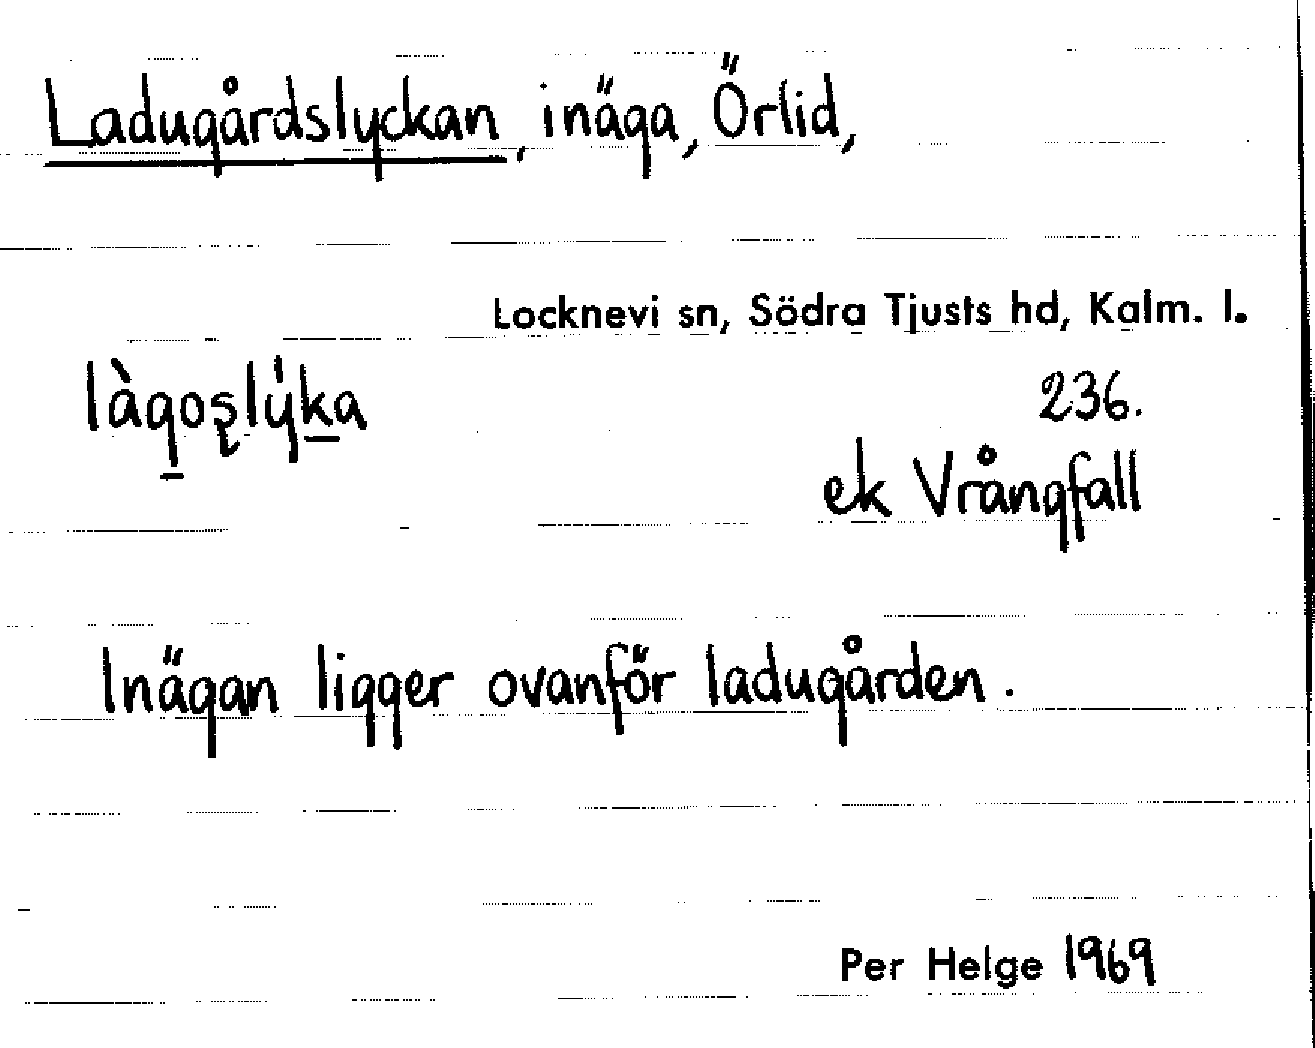 Ladugårdslyckan, inäga, Örlid,
Locknevi sn, Södra Tjusts hd, Kalm. l.
làgoʂlýka
236.
ek Vrångfall
Inägan ligger ovanför ladugården.
Per Helge 1969